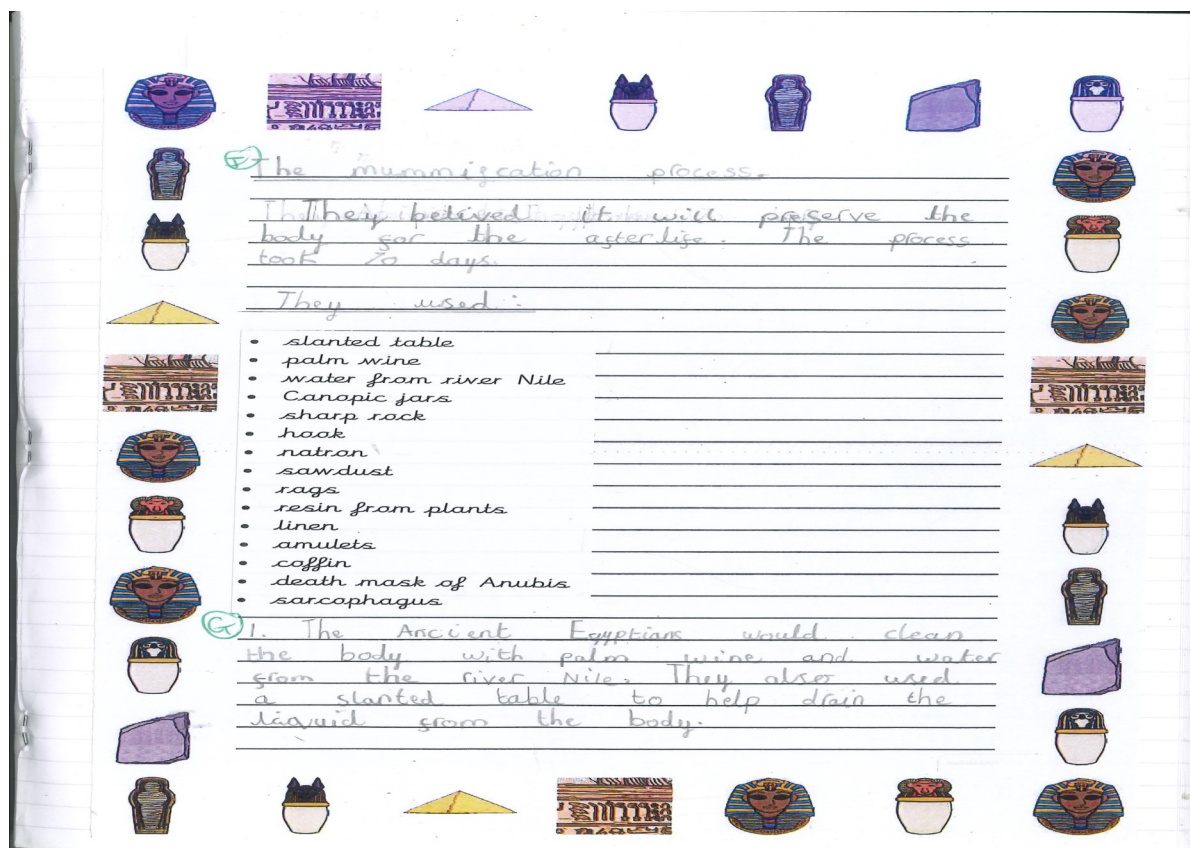 I
The mummification process.
They belived it will preserve the
body for the afterlife. The process
took 70 days.
They used:
• slanted table
• palm wine
• water from river Nile
• Canopic jars
• sharp rock
• hook
• natron
• sawdust
• rags
• resin from plants
• linen
• amulets
• coffin
• death mask of Anubis
• sarcophagus
G
1. The Ancient Egyptians would clean
the body with palm wine and water
from the river Nile. They also used
a slanted table to help drain the
liquid from the body.